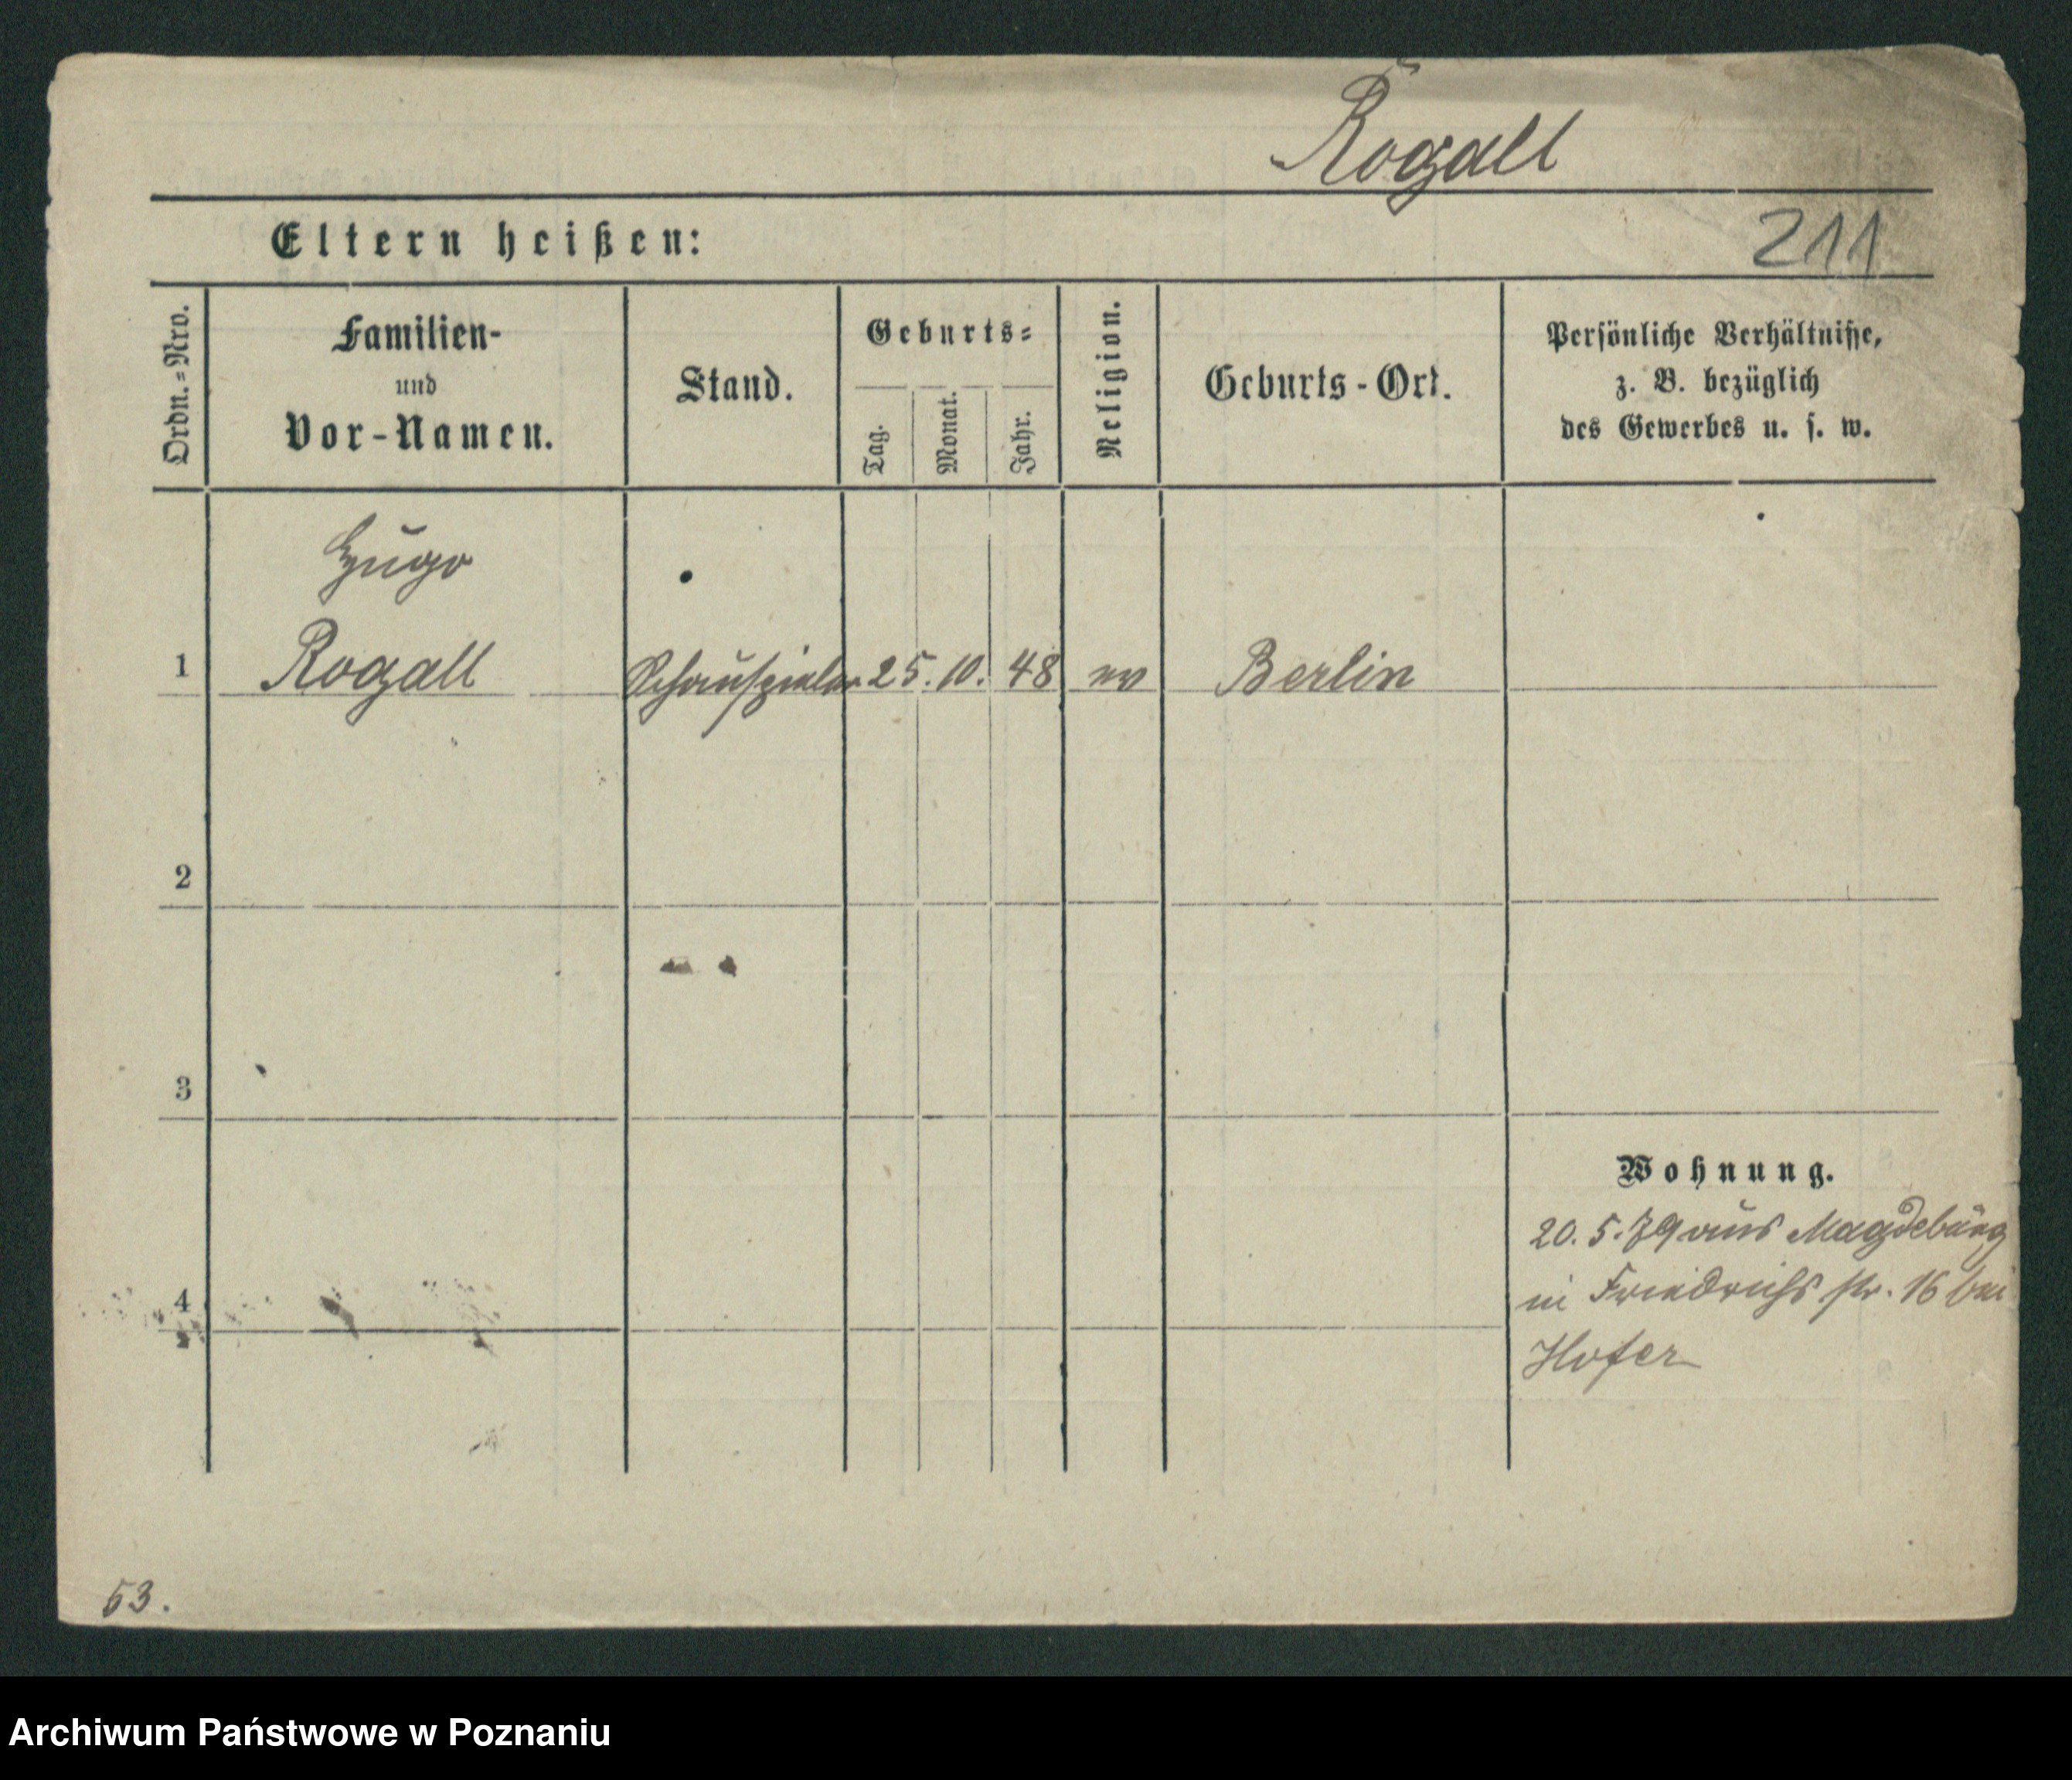 Rogall
Eltern heißen:
211
Ordn.=Nro.
Familien-
und
Vor-Namen.
Stand.
Geburts=
Tag.
Monat.
Jahr.
Religion.
Geburts-Ort.
Persönliche Verhältnisse,
z. B. bezüglich
des Gewerbes u. s. w.
Hugo
1 Rogall Schauspieler 25. 10. 48 ev Berlin
2
3
Wohnung.
20. 5. 79 aus Magdeburg
4
in Friedrichs str. 16 bei
Hofer
53.
Archiwum Państwowe w Poznaniu